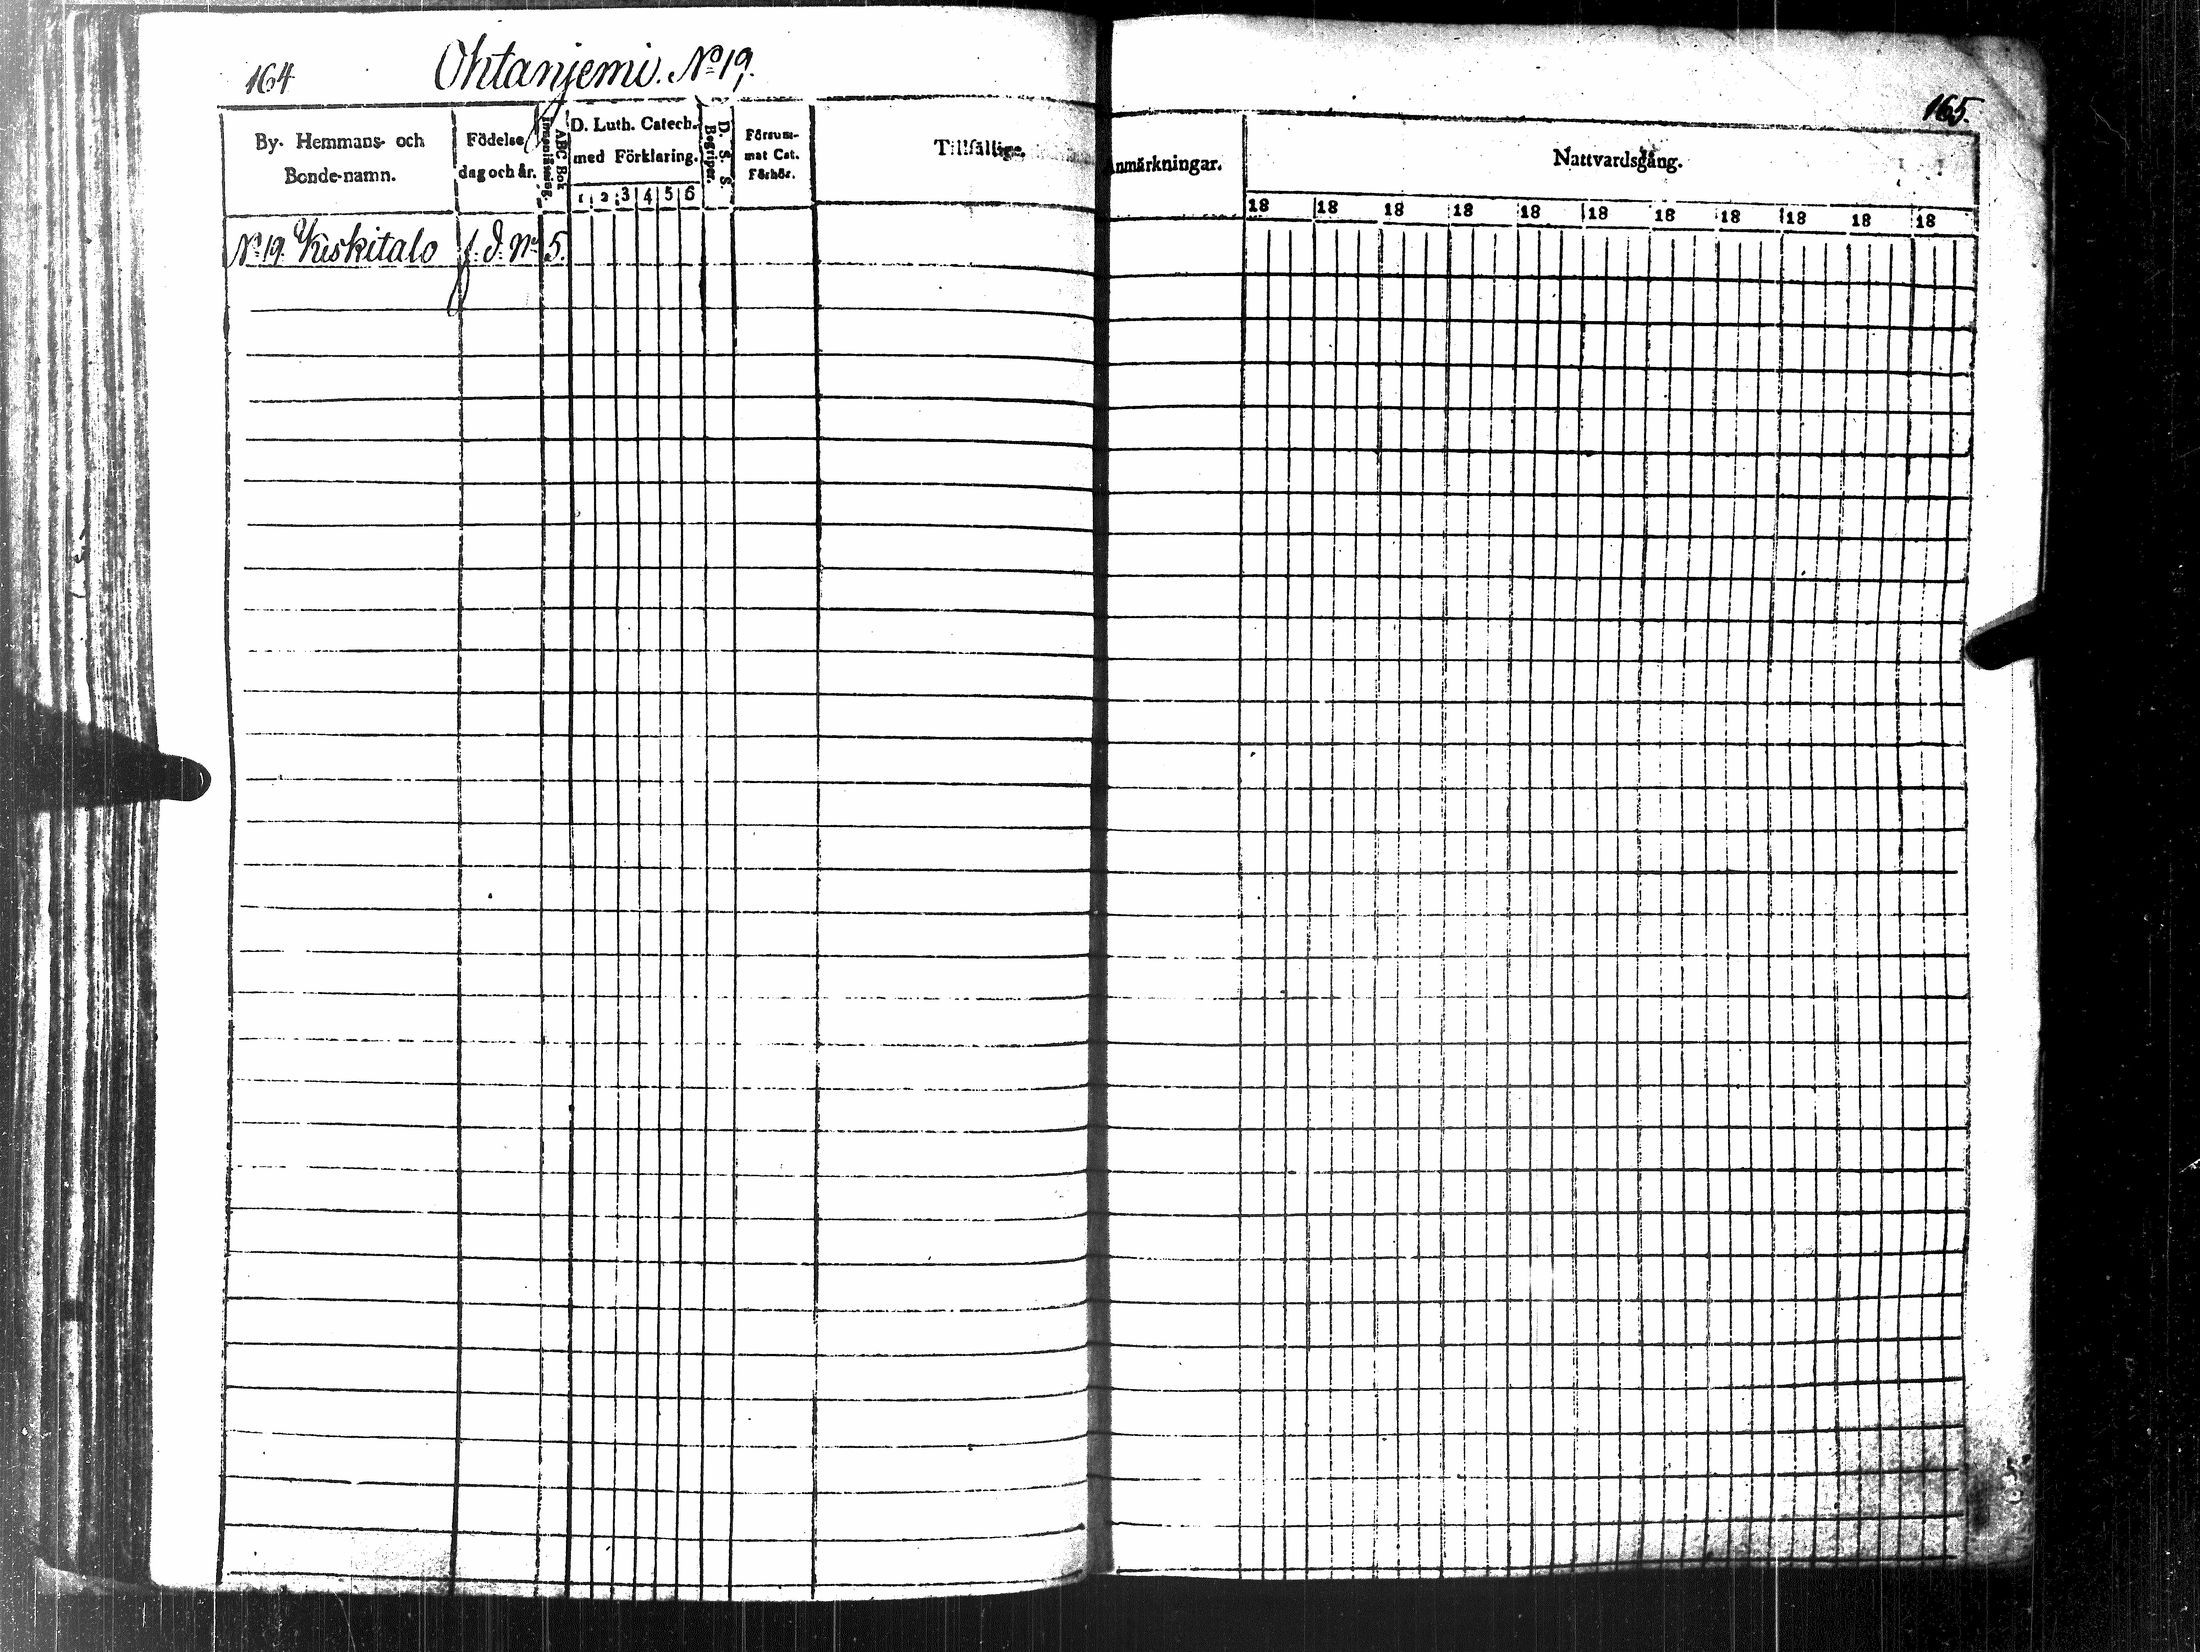 164
Ohtanjemi. No 19.
By- Hemmans- och
Bonde-namn.
Födelse
dag och år.
Innanläsning.
ABC Bok
D. Luth. Catech.
med Förklaring.
1 2 3 4 5 6
D. S. S.
Begriper.
Försum-
mat Cat.
Förhör.
Tillfällige
No 19. Keskitalo f. d. No 5.
165.
Anmärkningar.
Nattvardsgång.
18 18 18 18 18 18 18 18 18 18 18